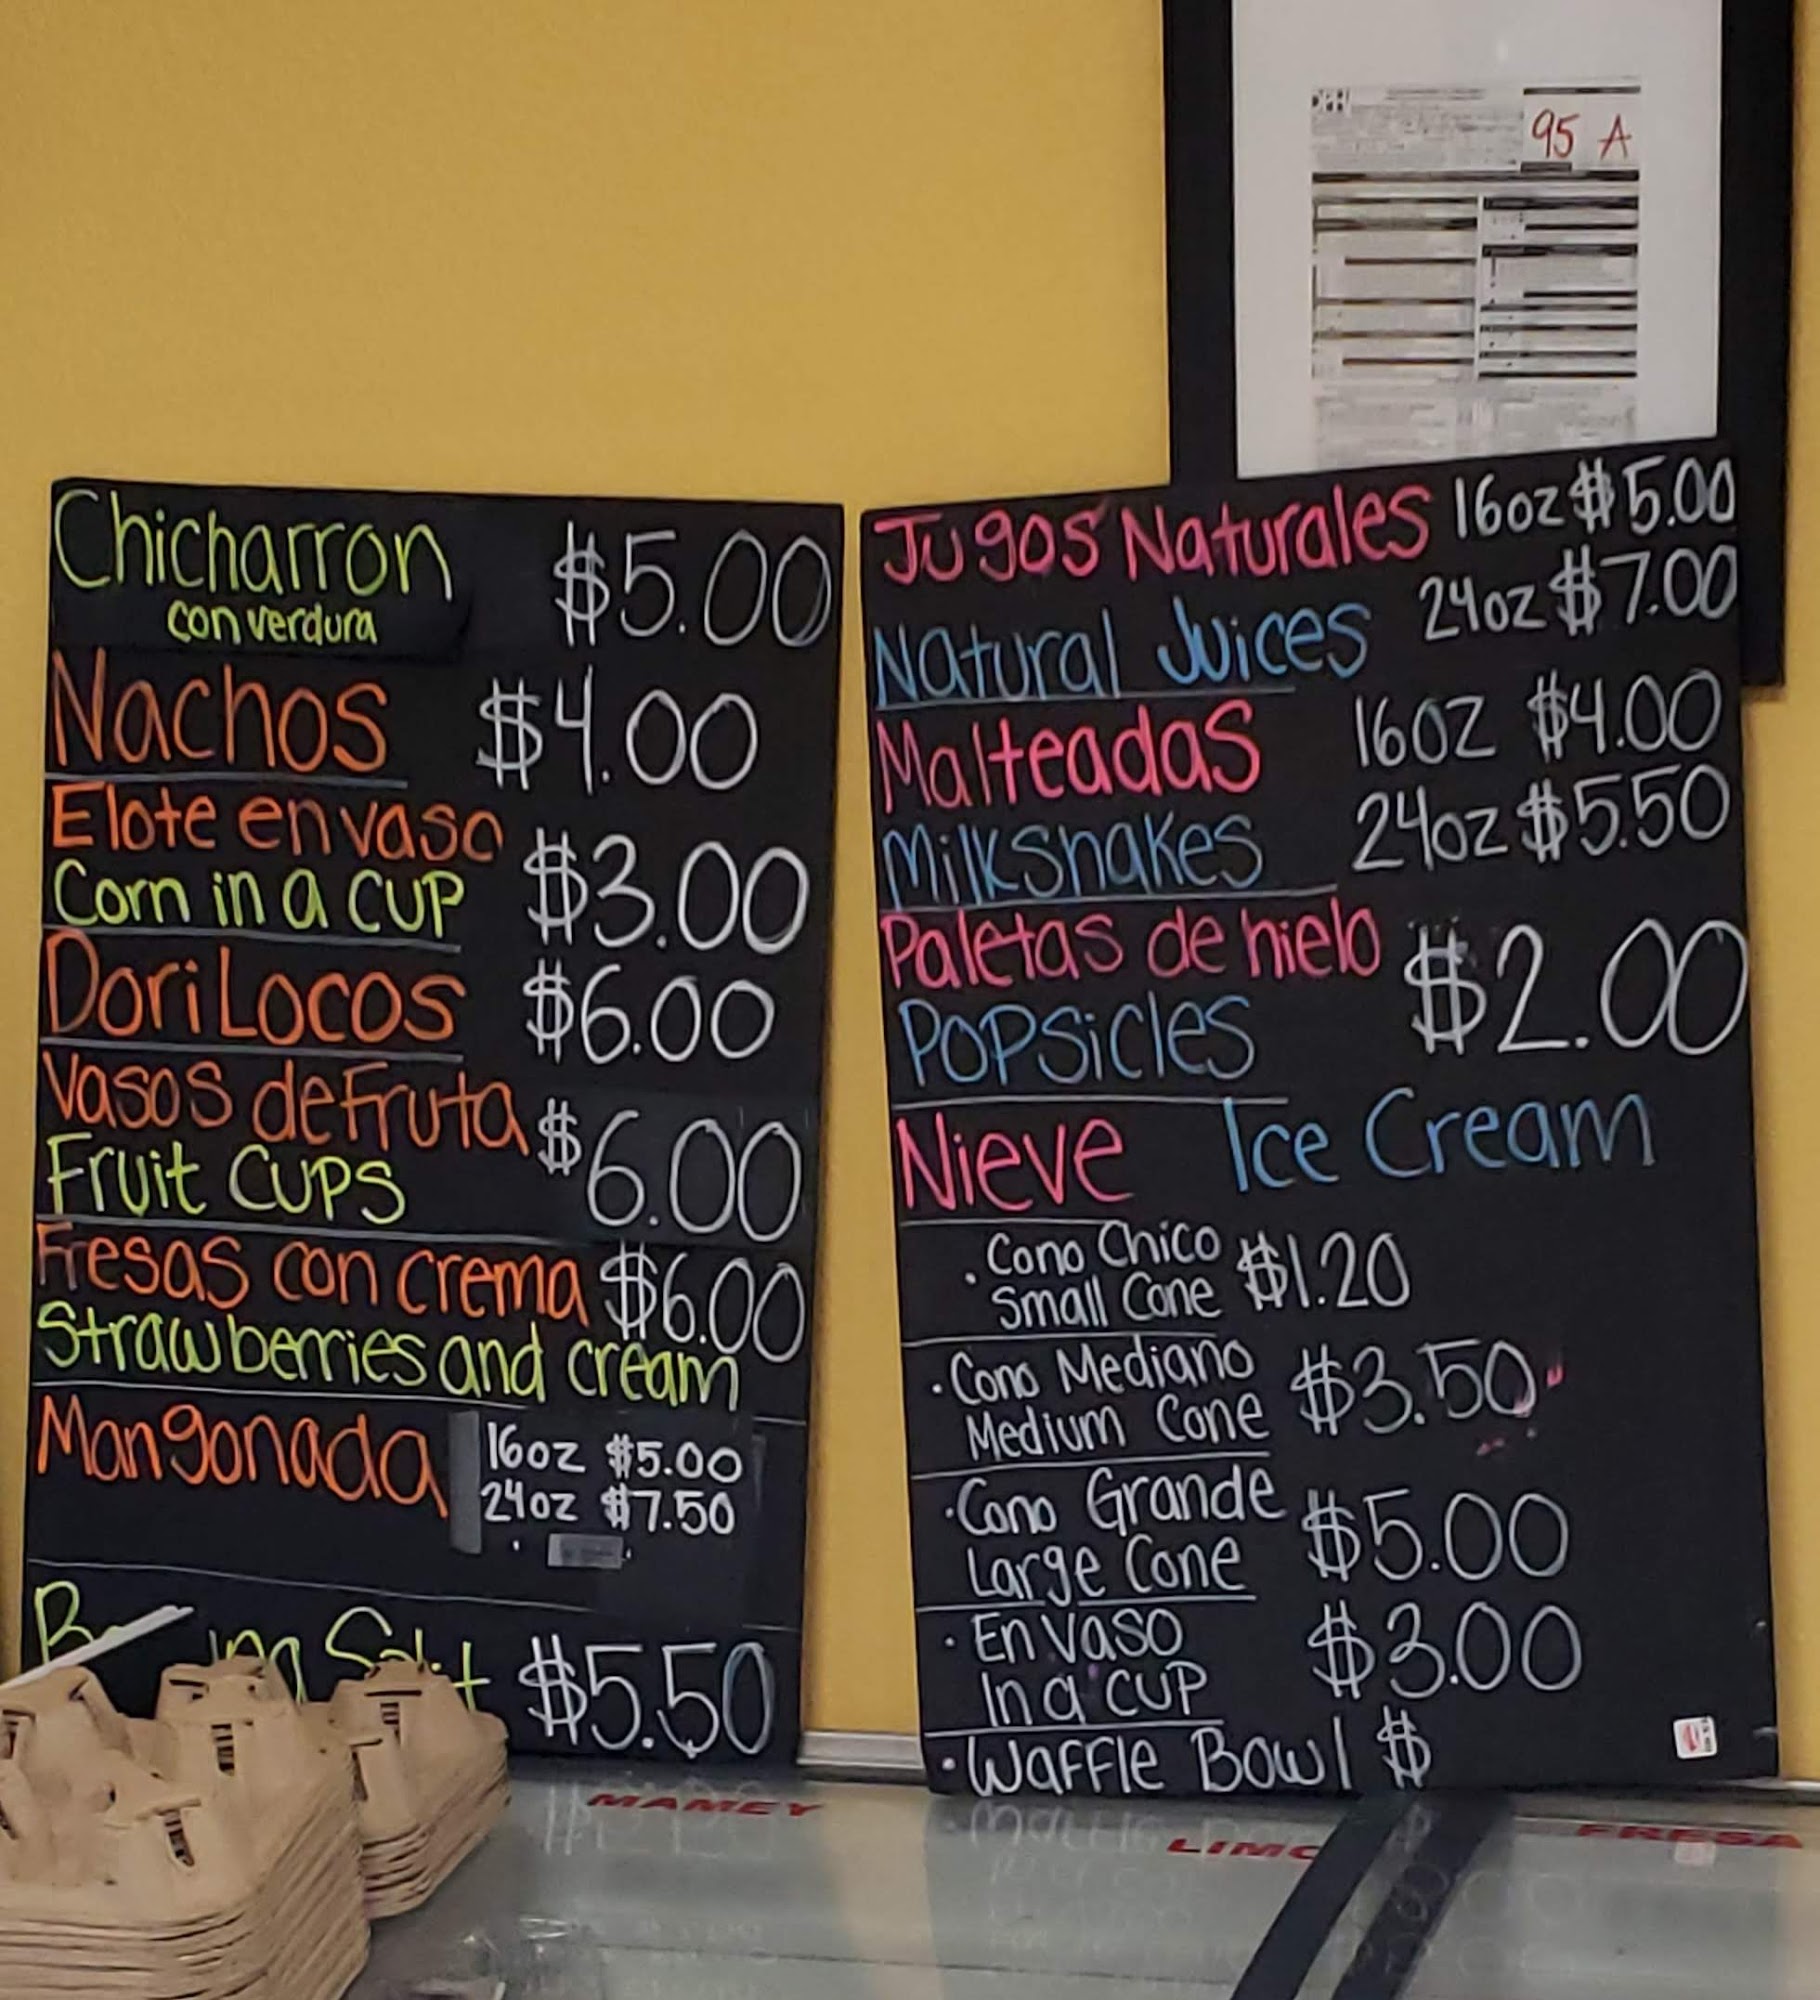 95 A
Chicharron $5.00
con verdura
Nachos $4.00
Elote en vaso
Corn in a CUP $3.00
Dori Locos $6.00
Vasos de Fruta
Fruit CUPS $6.00
Fresas con crema $6.00
Strawberries and cream
Mangonada 16oz $5.00
24oz $7.50
Split $5.50
Jugos Naturales 16oz $5.00
Natural Juices 24oz $7.00
Malteadas 16oz $4.00
Milkshakes 24oz $5.50
Paletas de hielo $2.00
Popsicles
Nieve Ice Cream
• Cono Chico
Small Cone $1.20
• Cono Mediano
Medium Cone $3.50
• Cono Grande
Large Cone $5.00
• En Vaso
In a CUP $3.00
• Waffle Bowl $
MAMEY
FRESA